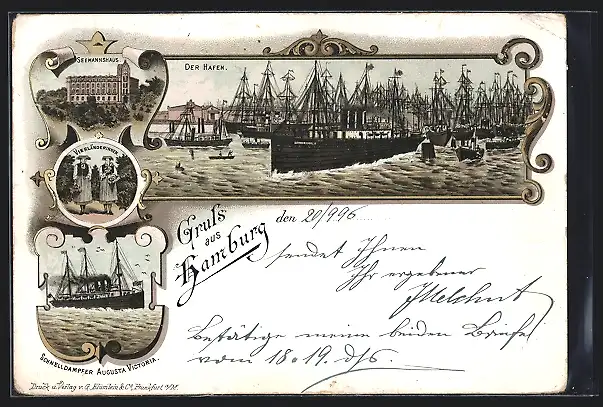 SEEMANNSHAUS.
DER HAFEN.
VIERLÄNDERINNEN
Gruss
aus
Hamburg
den 20/9 96
sendet Ihnen
Ihr ergebener
Bestätige meine beiden Briefe
vom 18 & 19. ds.
SCHNELLDAMPFER AUGUSTA VICTORIA.
Druck u. Verlag v. G. Blümlein & Co., Frankfurt a/M.